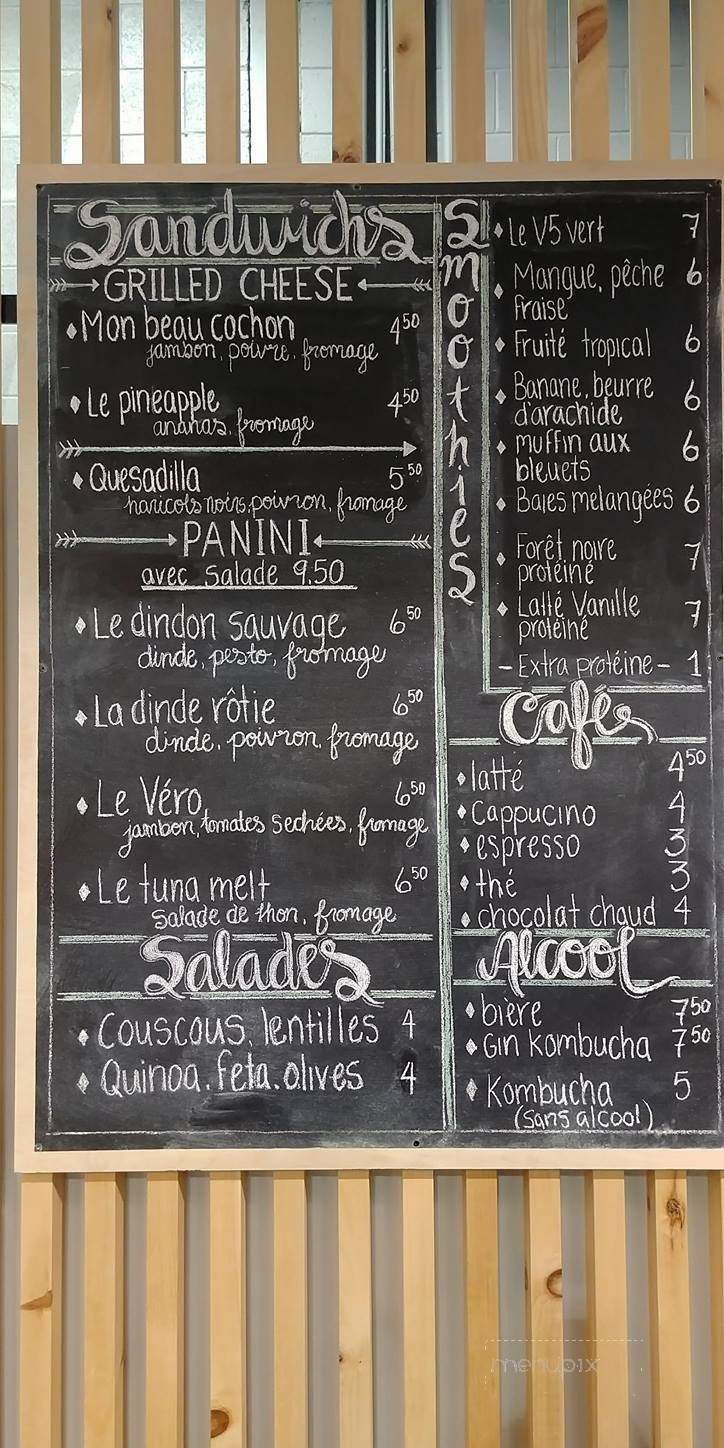 Sandwichs
GRILLED CHEESE
Mon beau cochon 4 50
jambon, poivre, fromage
Le pineapple 4 50
ananas, fromage
Quesadilla 5 50
haricots noirs, poivron, fromage
PANINI
avec salade 9.50
Le dindon sauvage 6 50
dinde, pesto, fromage
La dinde rôtie 6 50
dinde, poivron, fromage
Le Véro 6 50
jambon, tomates sechées, fromage
Le tuna melt 6 50
salade de thon, fromage
Salades
Couscous, lentilles 4
Quinoa, feta, olives 4
Smoothies
Le V5 vert 7
Mangue, pêche 6
fraise
Fruité tropical 6
Banane, beurre 6
d'arachide
muffin aux 6
bleuets
Baies melangées 6
Forêt noire 7
protéiné
Latté Vanille 7
protéiné
- Extra protéine - 1
Cafés
latté 4 50
Cappucino 4
espresso 3
thé 3
chocolat chaud 4
Alcool
bière 7 50
Gin Kombucha 7 50
Kombucha 5
(sans alcool)
menupix